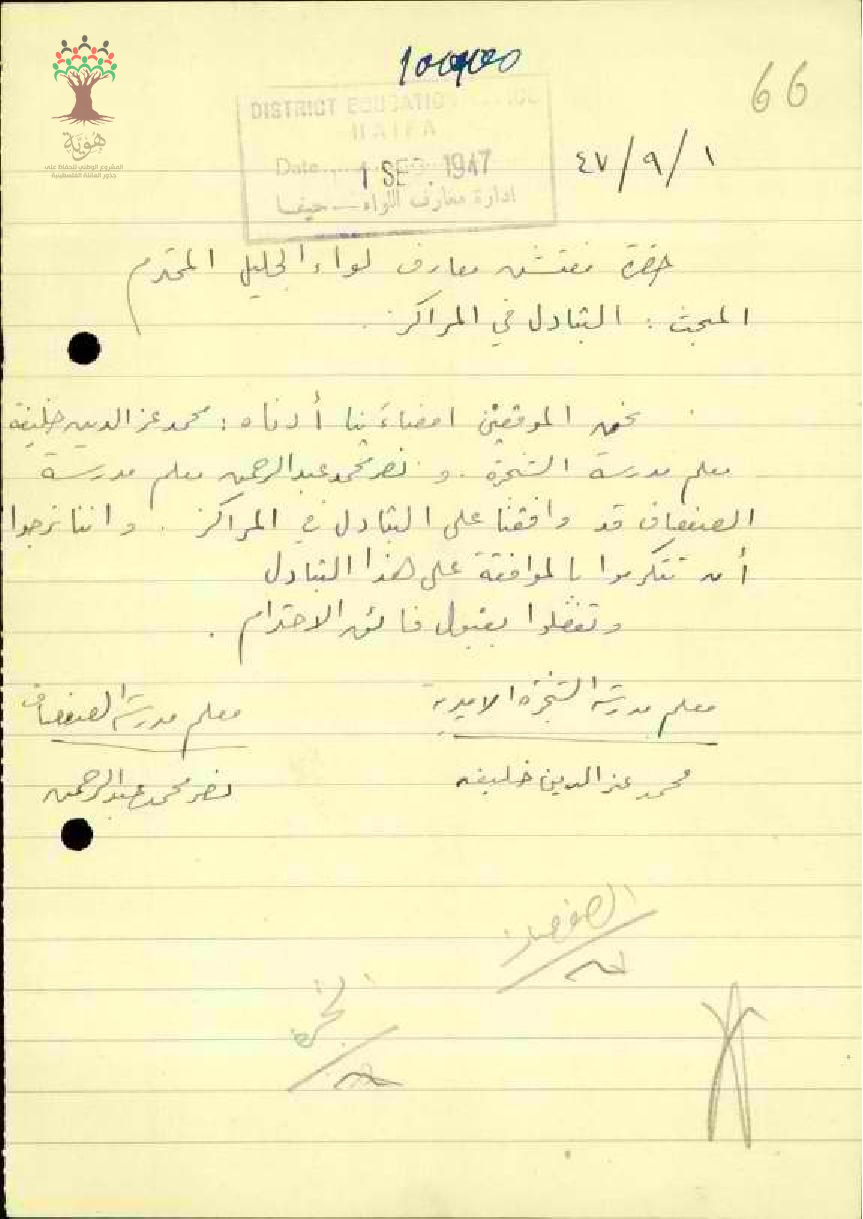 66
DISTRICT EDUCATION OFFICE
HAIFA
Date 1 SEP 1947
ادارة معارف اللواء - حيفا
٤٧/٩/١
هُويّة
المشروع الوطني للحفاظ على
جذور العائلة الفلسطينية
حضرة مفتش معارف لواء الجليل المحترم
المبحث : التبادل في المراكز .
نحن الموقعين امضاءَينا أدناه : محمد عز الدين خليفة
معلم مدرسة الشجرة . و نصر محمد عبد الرحمن معلم مدرسة
الصفصاف قد وافقنا على التبادل في المراكز . واننا نرجوا
أن تتكرموا بالموافقة على هذا التبادل
وتفضلوا بقبول فائق الاحترام .
معلم مدرسة الشجرة الاميرية
معلم مدرسة الصفصاف
محمد عز الدين خليفه
نصر محمد عبد الرحمن
الصفصاف
الشجرة